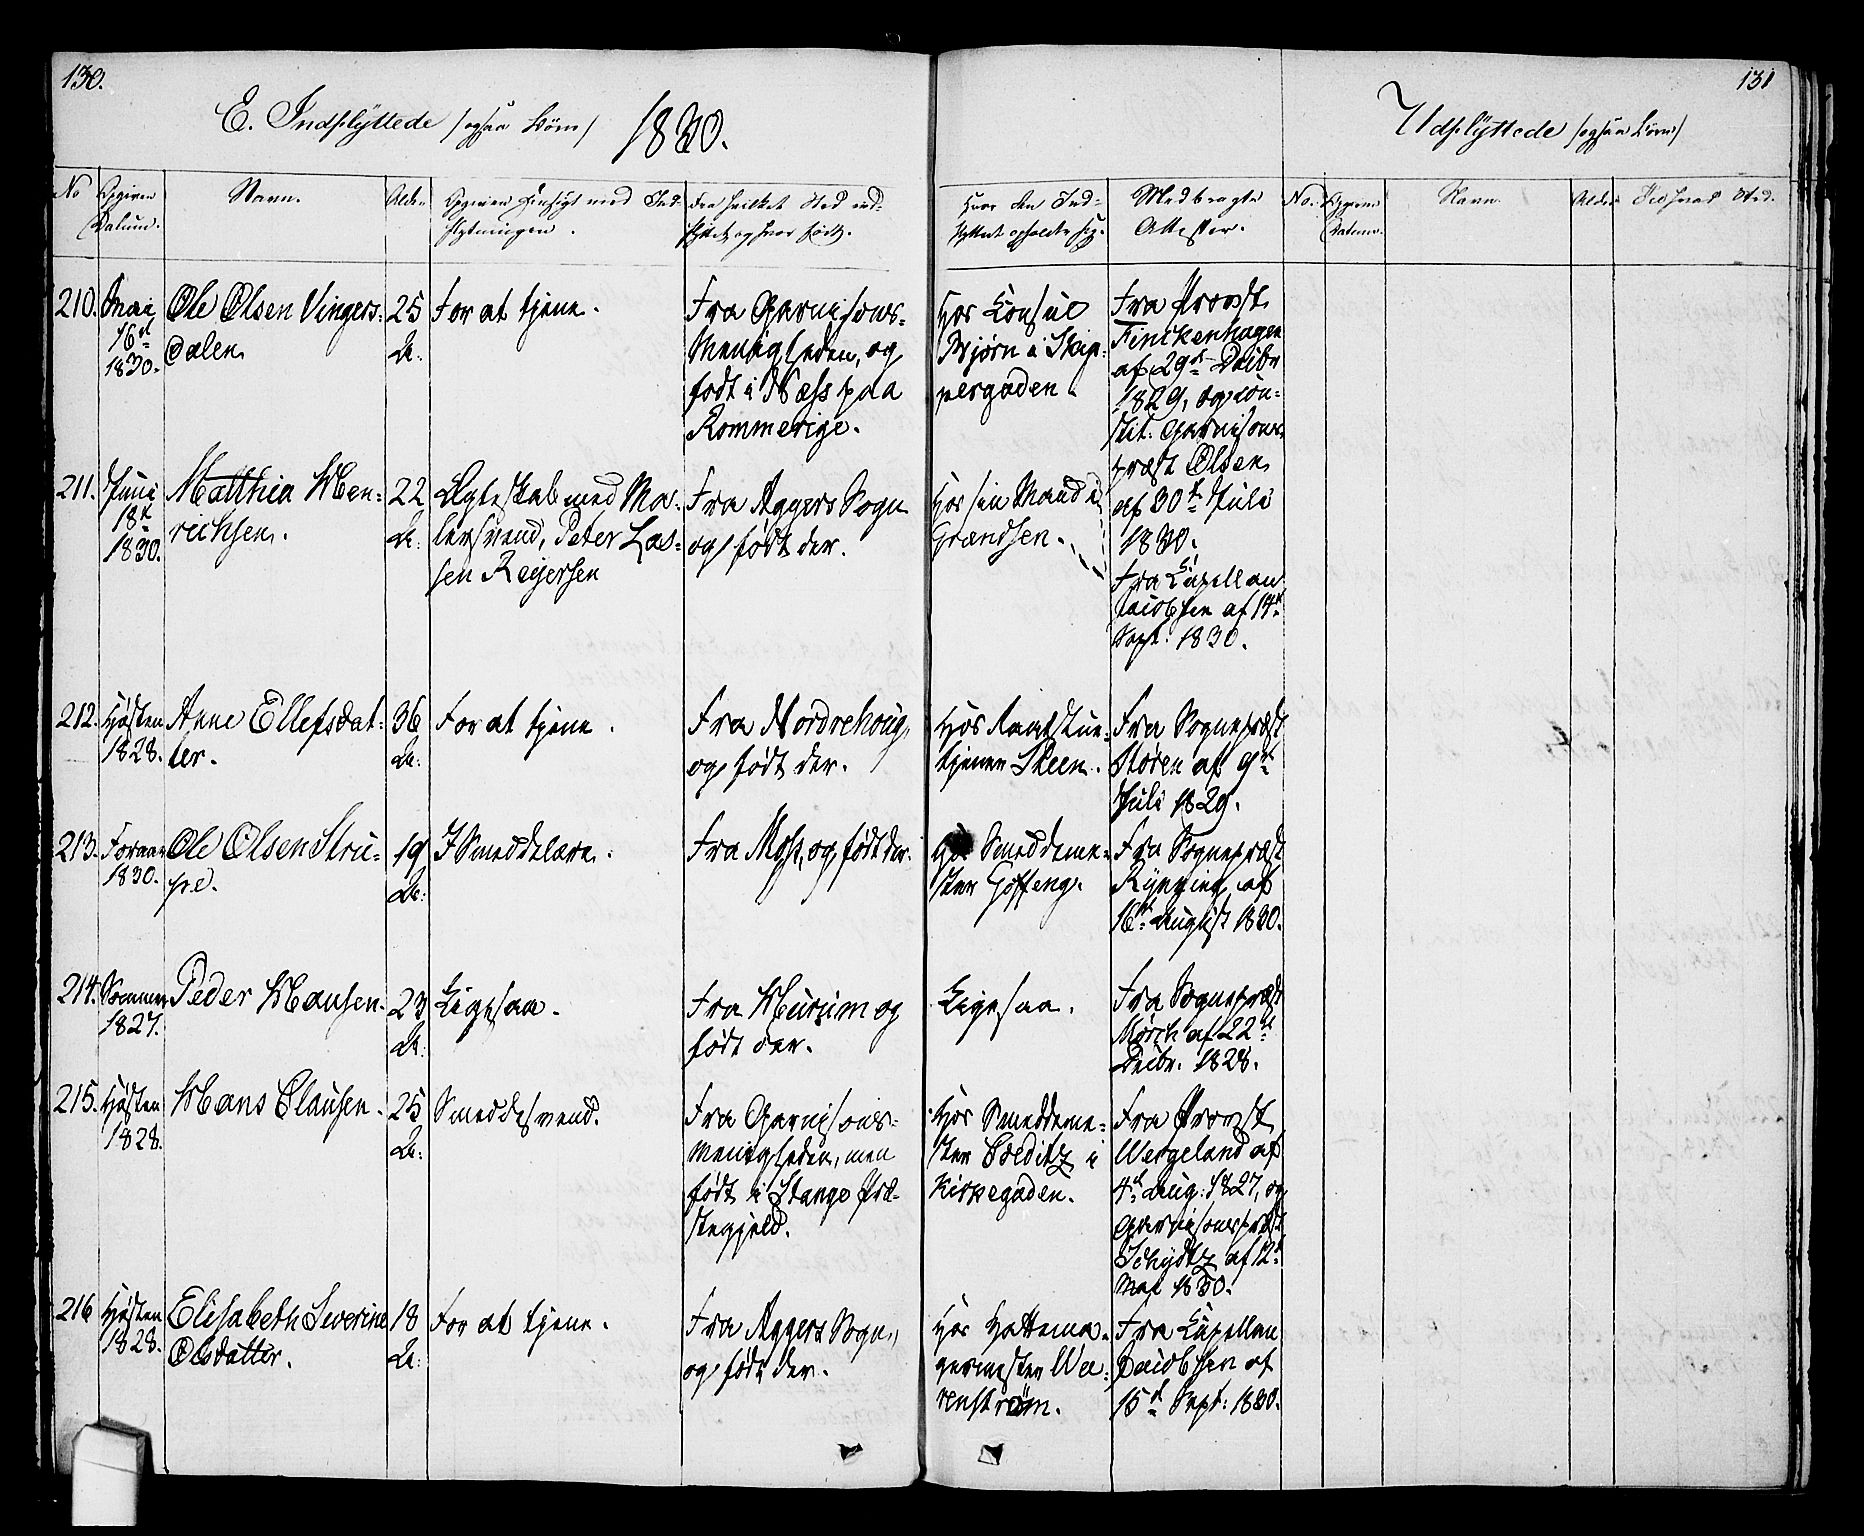 130.
E. Indflyttede /ogsaa Børn/ 1830.
No
Opgiven
Datum.
Navn.
Alder
Opgiven Hensigt med Ind-
flytningen.
Fra hvilket Sted ind-
flyttet og hvor født.
Hvor den Ind-
flyttede opholder sig.
Medbragte
Attester.
131
Udflyttede /ogsaa Børn/
No.
Opgiven
Datum.
Navn.
Alder
Sted.
210.
Mai
16de
1830.
Ole Olsen Vingers-
dalen
25
A:
For at tjene.
Fra Garnisons-
Menigheden, og
født i Næss paa
Rommerige.
Hos Konsul
Bjørn i Skip-
pergaden.
Fra Provst
Finckenhagen
af 29de Decbr
1829, og con-
stit: Garnisons
præst Olsen
af 30te Juli
1830.
211.
Juni
18de
1830.
Matthia Hen-
richsen.
22
A:
Ægteskab med Ma-
lersvend, Peter Las-
sen Reyersen
Fra Aggers Sogn
og født der.
Hos sin Mand i
Grændsen.
Fra Capellan
Jacobsen af 14de
Sept: 1830.
212.
Høsten
1828.
Anne Ellefsdat-
ter.
36
A:
For at tjene.
Fra Nordrehoug,
og født der.
Hos Raadstue-
tjener Skeen.
Fra Sognepræst
Støren af 9de
Juli 1829.
213.
Foraar
1830.
Ole Olsen Stru-
pe.
19
A:
I Smeddelære.
Fra Moss, og født der.
Hos Smeddeme-
ster Goffeng.
Fra Sognepræst
Rynning af
16de August 1830.
214.
Sommer
1827.
Peder Hansen.
23
A:
Ligesaa.
Fra Hurum og
født der.
Ligesaa.
Fra Sognepræst
Mørch af 22de
Decbr. 1828.
215.
Høsten
1828.
Hans Clausen.
25
A:
Smeddesvend.
Fra Garnisons-
Menigheden, men
født i Stange Præ-
stegjeld.
Hos Smeddeme-
ster Colditz i
Kirkegaden.
Fra Provst
Wergeland af
4de Aug: 1827, og
Garnisonspræst
Schydtz af 12te
Mai 1830.
216
Høsten
1828.
Elisabeth Severine
Olsdatter.
18
A:
For at tjene.
Fra Aggers Sogn,
og født der.
Hos Hattema-
germester We-
renstrøm.
Fra Capellan
Jacobsen af
15de Sept: 1830.